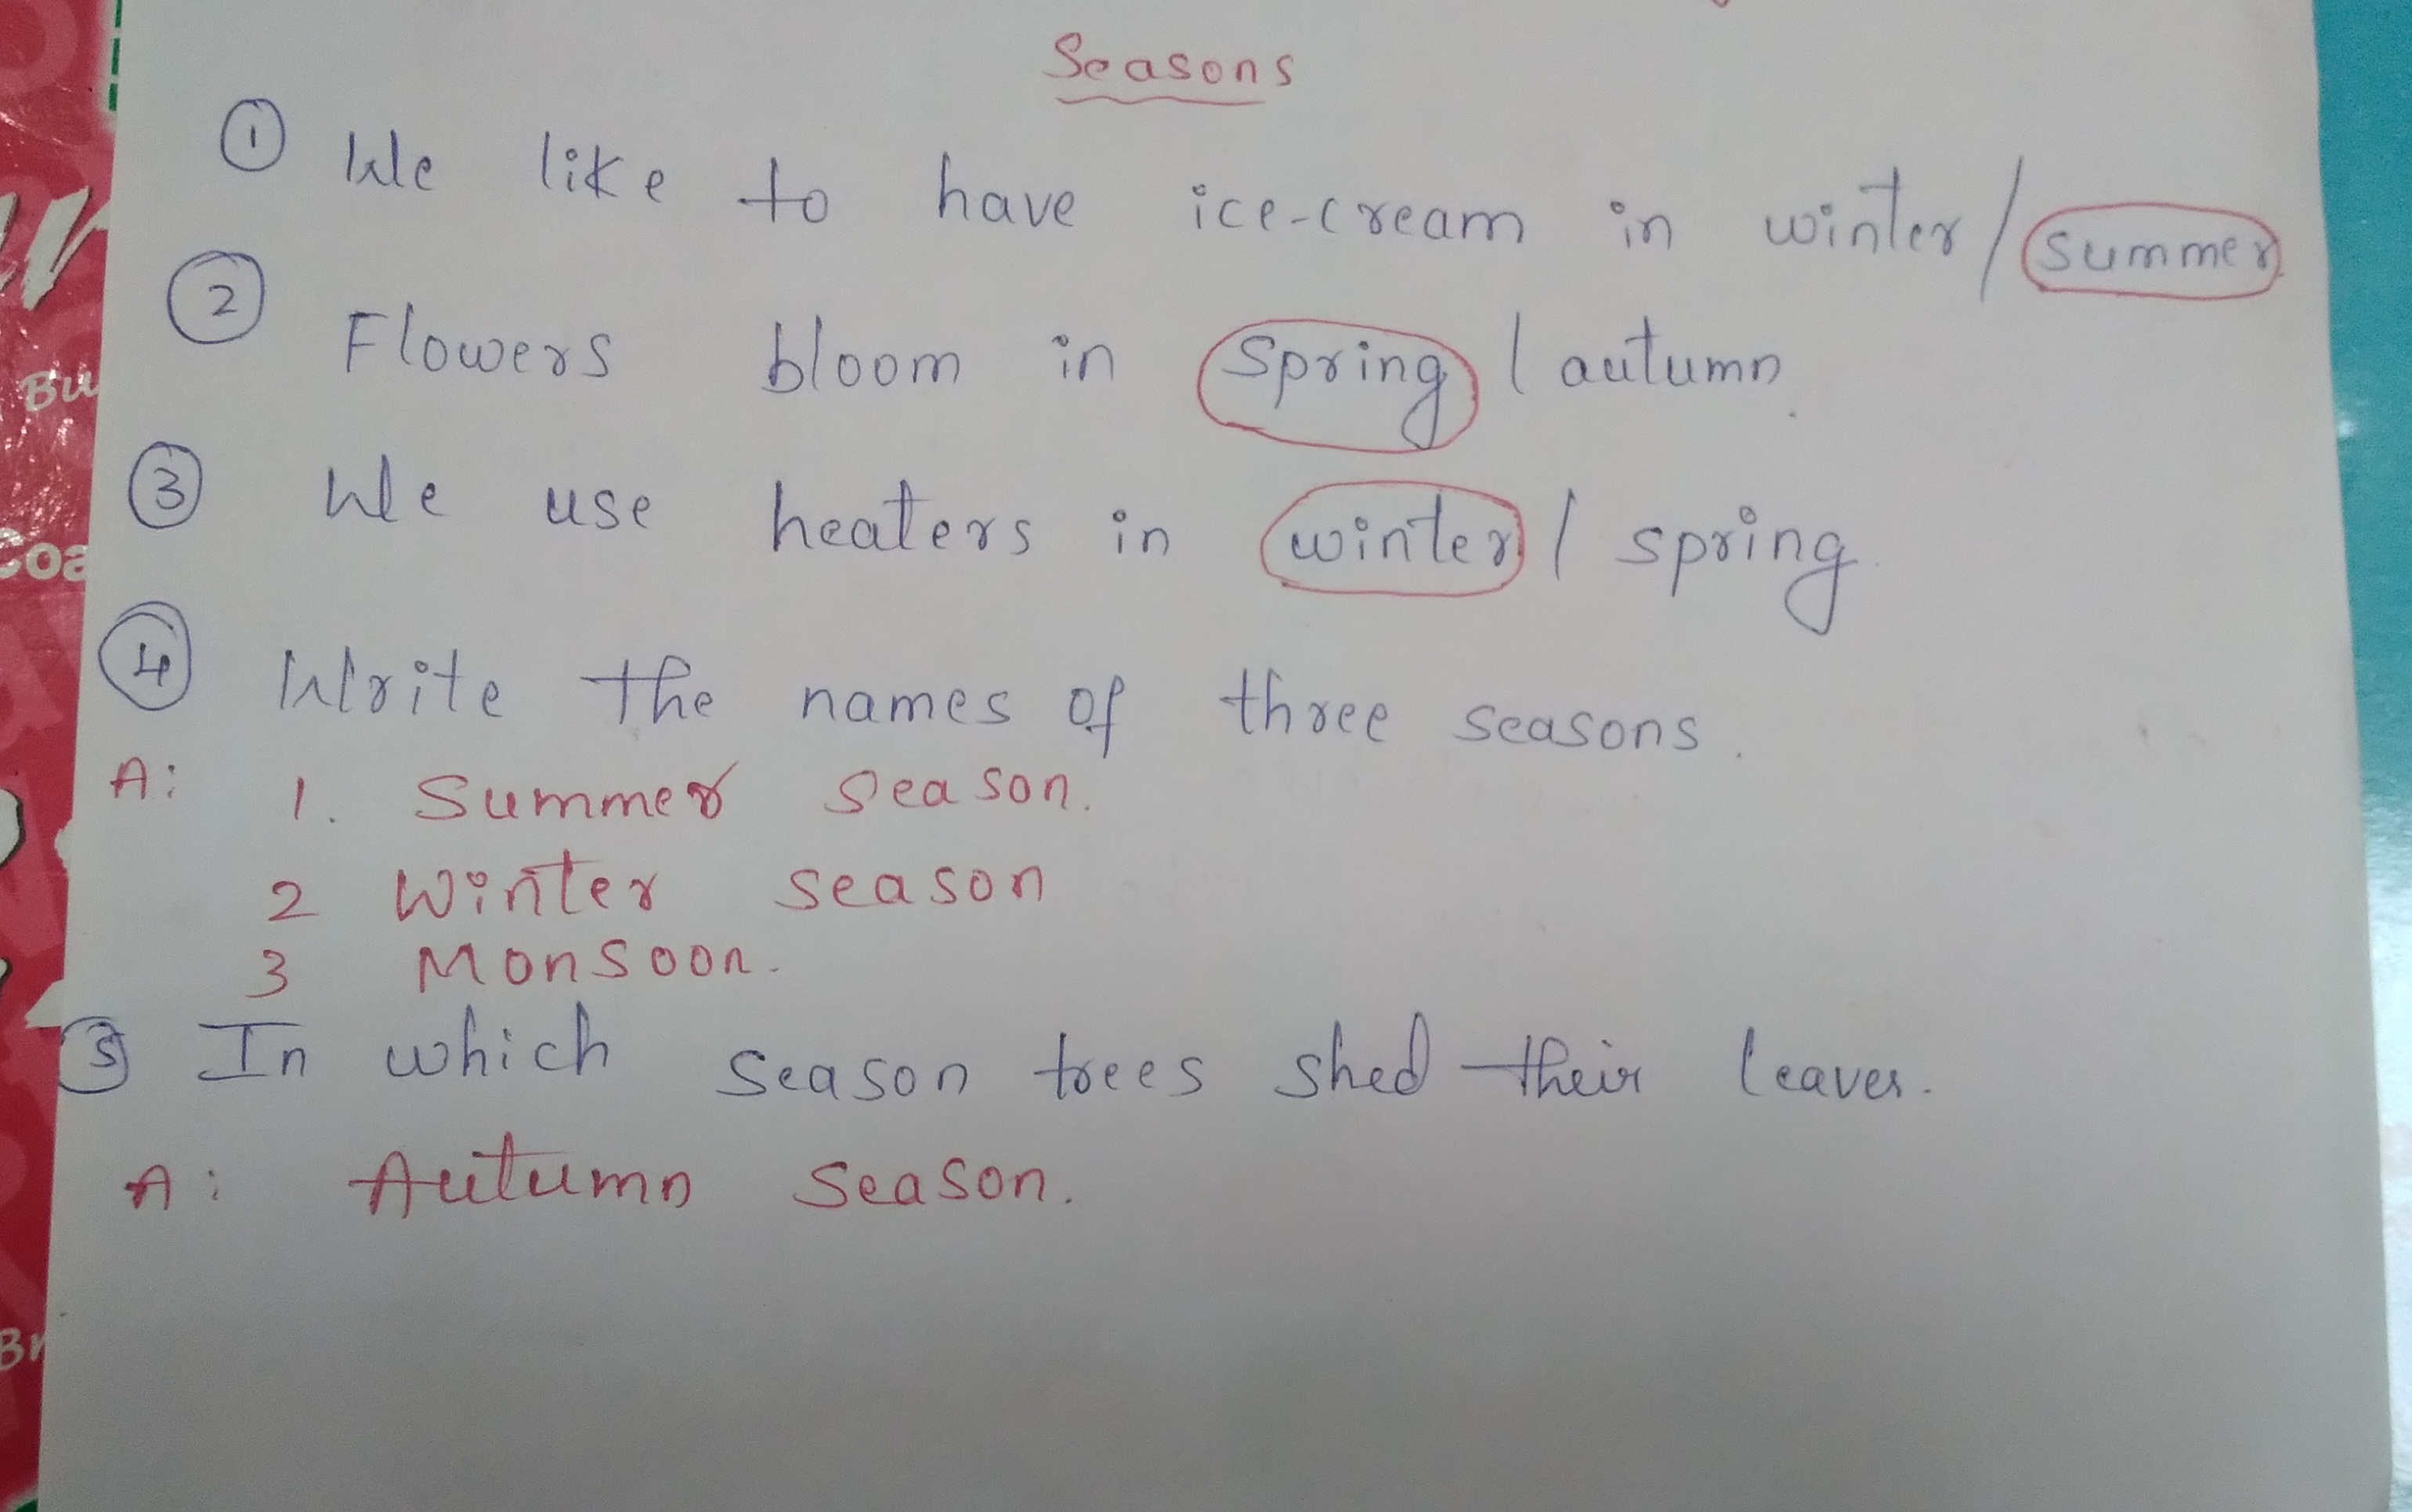 Seasons
① We like to have ice-cream in winter/summer
② Flowers bloom in spring / autumn.
③ We use heaters in winter / spring
④ Write the names of three seasons.
A: 1. Summer season.
2 Winter season
3 Monsoon.
⑤ In which season trees shed their leaves.
A: Autumn season.